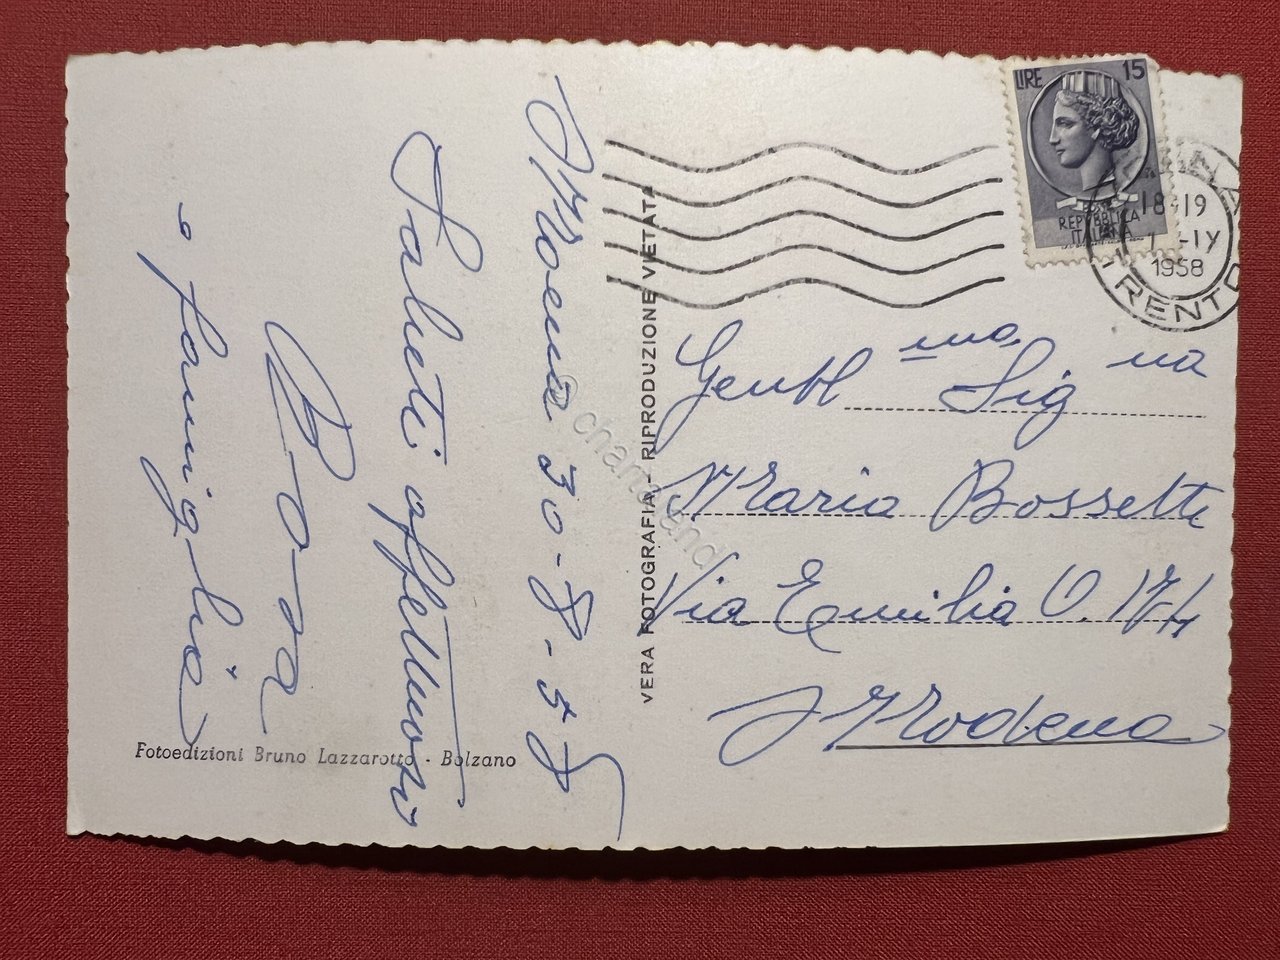 Moena 30-8-58
Saluti affettuosi
Rosa
e famiglia
Fotoedizioni Bruno Lazzarotto - Bolzano
VERA FOTOGRAFIA - RIPRODUZIONE VIETATA
LIRE 15
REPUBBLICA
ITALIANA
18-19
-IX
1958
TRENTO
Gentil ma Sig na
Maria Bossetti
Via Emilia O.
Modena